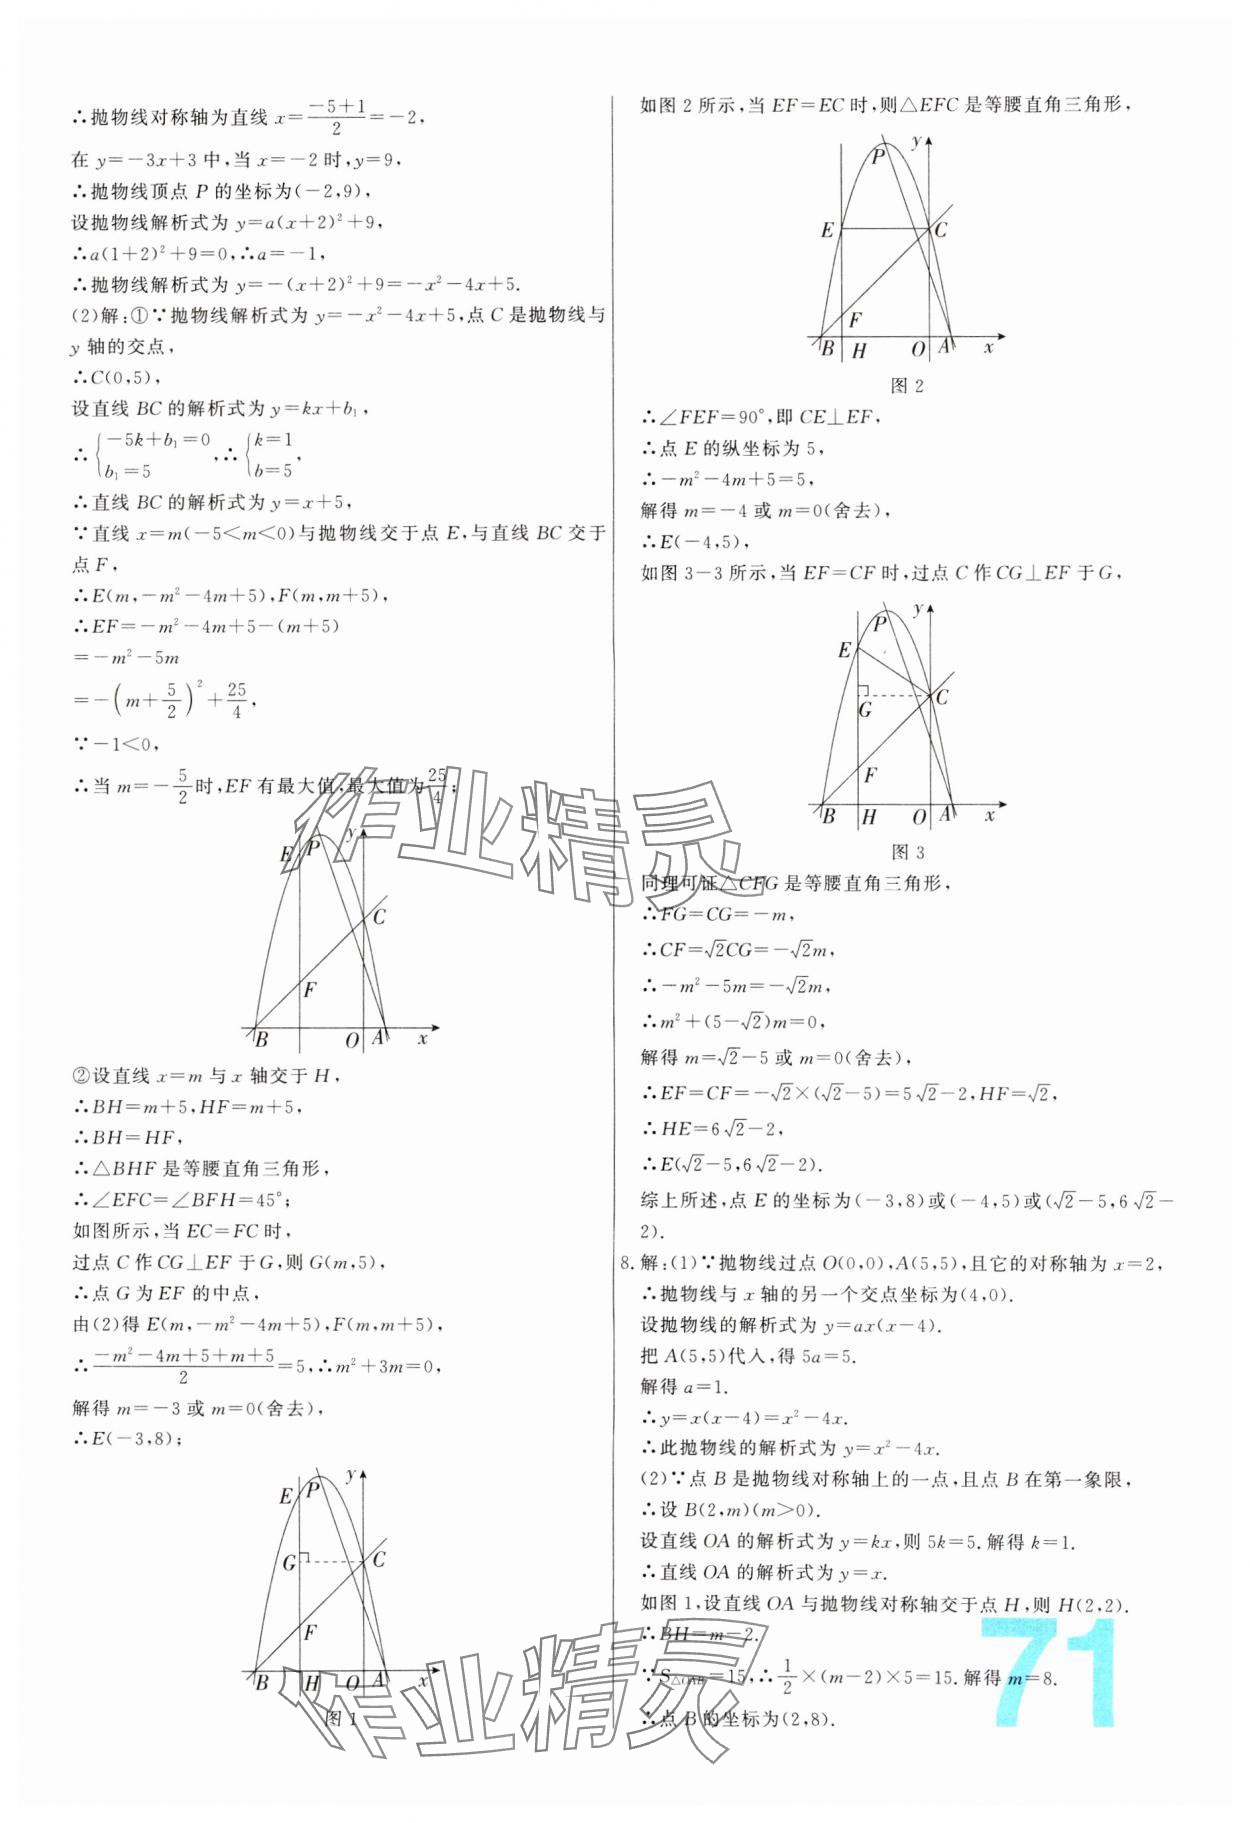 ∴抛物线对称轴为直线 x=\frac{-5+1}{2}=-2,
在 y=-3x+3 中,当 x=-2 时,y=9,
∴抛物线顶点 P 的坐标为(-2,9),
设抛物线解析式为 y=a(x+2)²+9,
∴a(1+2)²+9=0,∴a=-1,
∴抛物线解析式为 y=-(x+2)²+9=-x²-4x+5.
(2)解:①∵抛物线解析式为 y=-x²-4x+5,点 C 是抛物线与
y 轴的交点,
∴C(0,5),
设直线 BC 的解析式为 y=kx+b₁,
∴{-5k+b₁=0 b₁=5,∴{k=1 b=5,
∴直线 BC 的解析式为 y=x+5,
∵直线 x=m(-5<m<0)与抛物线交于点 E,与直线 BC 交于
点 F,
∴E(m,-m²-4m+5),F(m,m+5),
∴EF=-m²-4m+5-(m+5)
=-m²-5m
=-(m+\frac{5}{2})²+\frac{25}{4},
∵-1<0,
∴当 m=-\frac{5}{2}时,EF 有最大值,最大值为\frac{25}{4};
E P y
C
F
B O A x
②设直线 x=m 与 x 轴交于 H,
∴BH=m+5,HF=m+5,
∴BH=HF,
∴△BHF 是等腰直角三角形,
∴∠EFC=∠BFH=45°;
如图所示,当 EC=FC 时,
过点 C 作 CG⊥EF 于 G,则 G(m,5),
∴点 G 为 EF 的中点,
由(2)得 E(m,-m²-4m+5),F(m,m+5),
∴\frac{-m²-4m+5+m+5}{2}=5,∴m²+3m=0,
解得 m=-3 或 m=0(舍去),
∴E(-3,8);
E P y
G C
F
B H O A x
图 1
如图 2 所示,当 EF=EC 时,则△EFC 是等腰直角三角形,
P y
E C
F
B H O A x
图 2
∴∠FEF=90°,即 CE⊥EF,
∴点 E 的纵坐标为 5,
∴-m²-4m+5=5,
解得 m=-4 或 m=0(舍去),
∴E(-4,5),
如图 3-3 所示,当 EF=CF 时,过点 C 作 CG⊥EF 于 G,
P y
E
G C
F
B H O A x
图 3
同理可证△CFG 是等腰直角三角形,
∴FG=CG=-m,
∴CF=√2CG=-√2m,
∴-m²-5m=-√2m,
∴m²+(5-√2)m=0,
解得 m=√2-5 或 m=0(舍去),
∴EF=CF=-√2×(√2-5)=5√2-2,HF=√2,
∴HE=6√2-2,
∴E(√2-5,6√2-2).
综上所述,点 E 的坐标为(-3,8)或(-4,5)或(√2-5,6√2-
2).
8.解:(1)∵抛物线过点 O(0,0),A(5,5),且它的对称轴为 x=2,
∴抛物线与 x 轴的另一个交点坐标为(4,0).
设抛物线的解析式为 y=ax(x-4).
把 A(5,5)代入,得 5a=5.
解得 a=1.
∴y=x(x-4)=x²-4x.
∴此抛物线的解析式为 y=x²-4x.
(2)∵点 B 是抛物线对称轴上的一点,且点 B 在第一象限,
∴设 B(2,m)(m>0).
设直线 OA 的解析式为 y=kx,则 5k=5.解得 k=1.
∴直线 OA 的解析式为 y=x.
如图 1,设直线 OA 与抛物线对称轴交于点 H,则 H(2,2).
∴BH=m-2.
∵S△OAB=15,∴\frac{1}{2}×(m-2)×5=15.解得 m=8.
∴点 B 的坐标为(2,8).
71
作业精灵
作业精灵